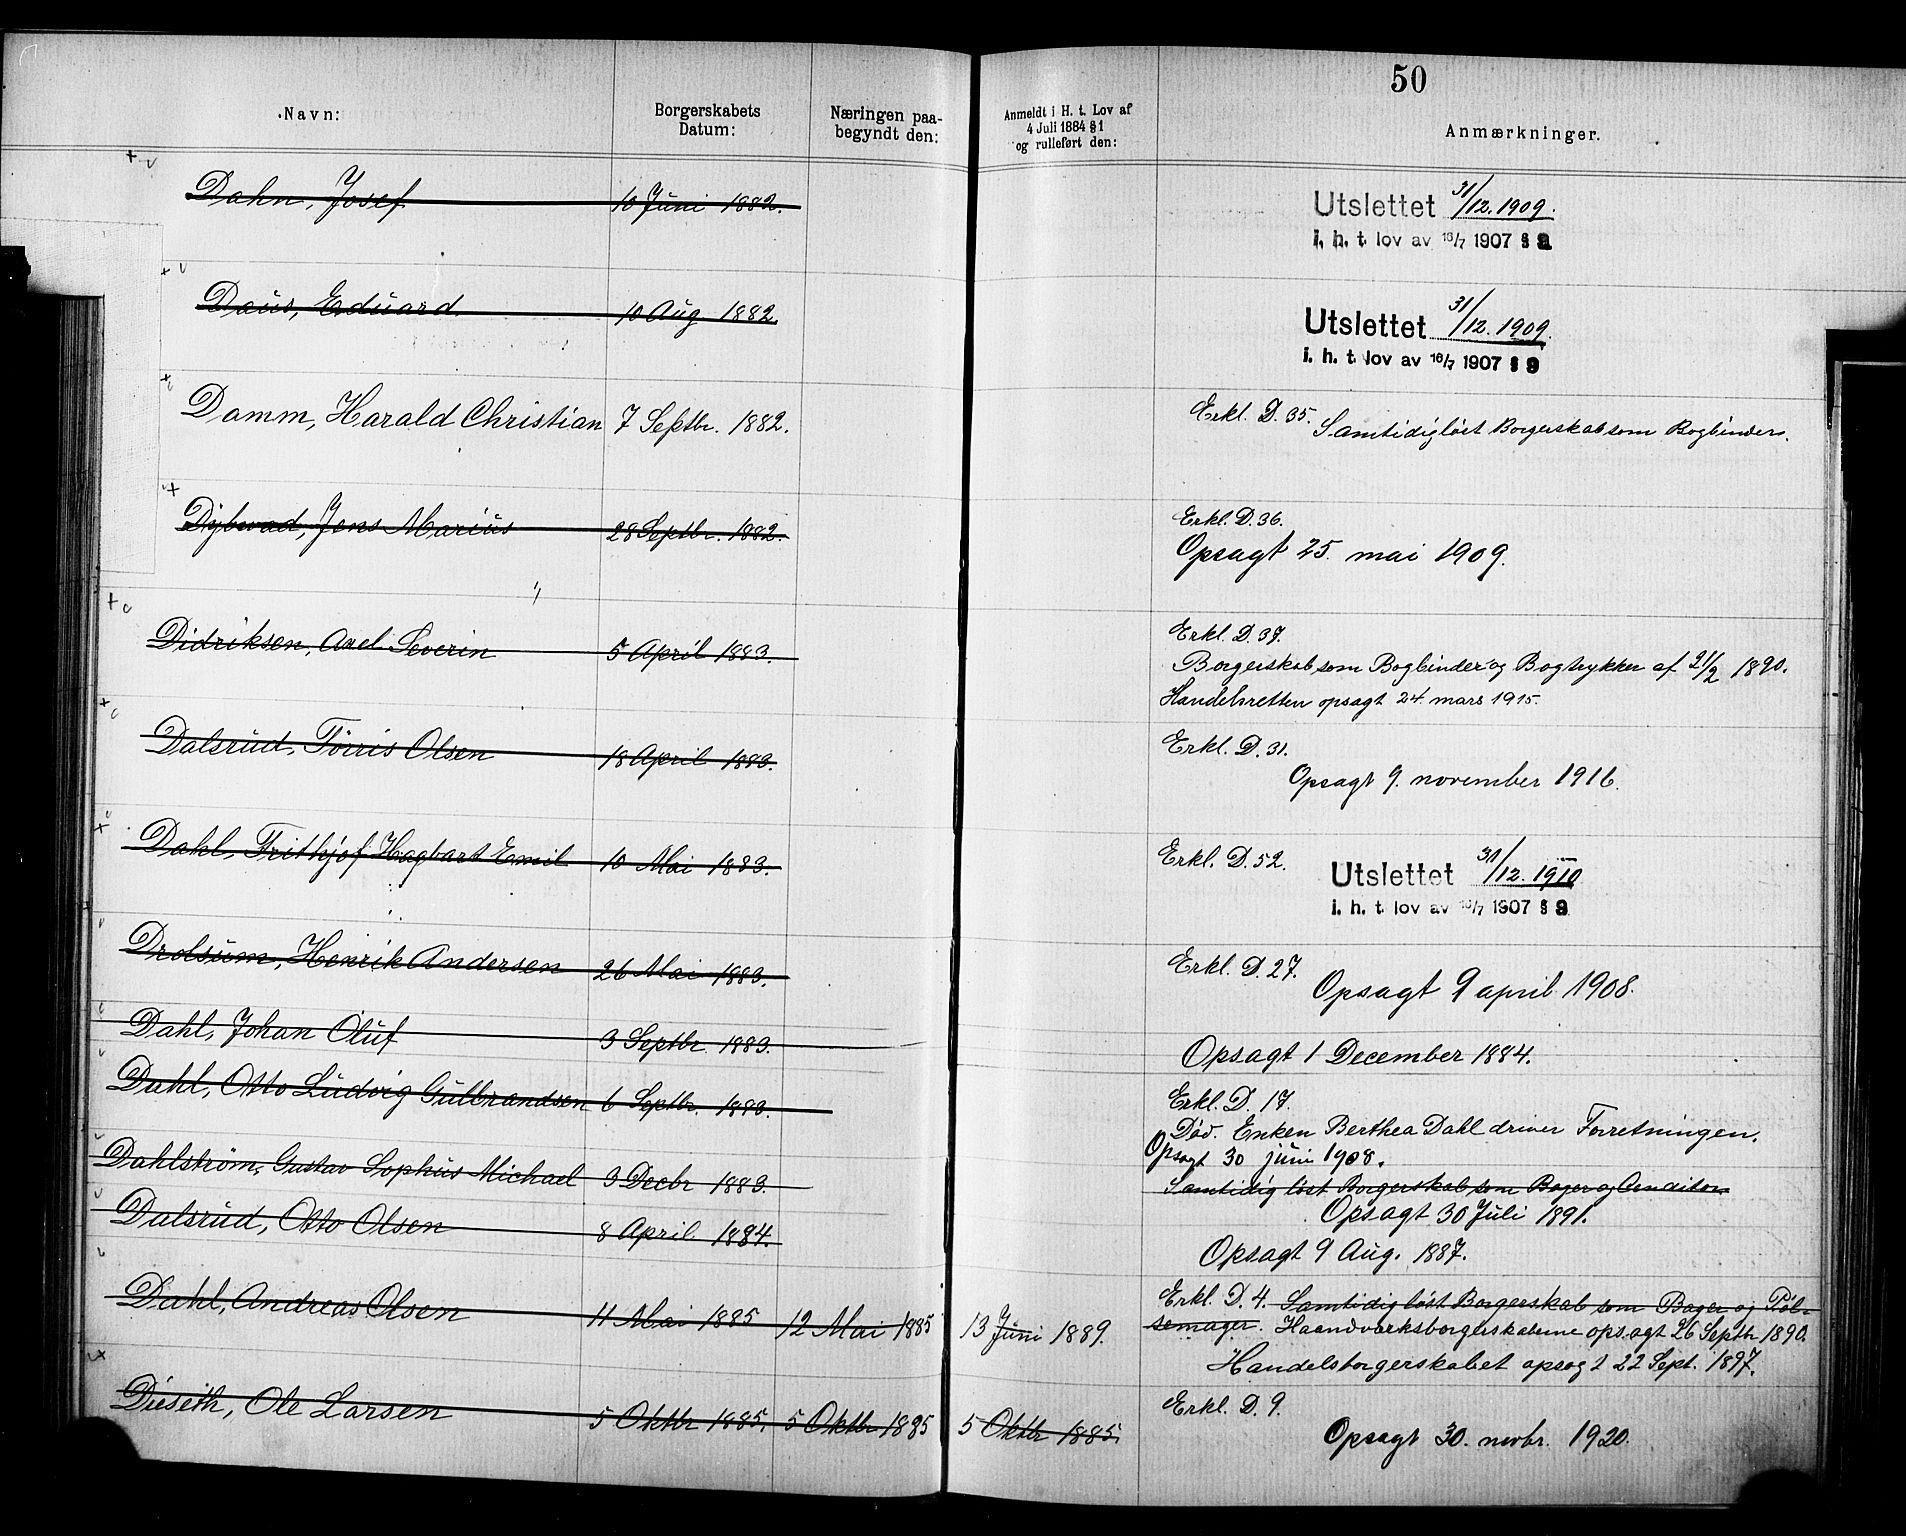 50
Navn:
Borgerskabets
Datum:
Næringen paa-
begyndt den:
Anmeldt i H. t. Lov af
4 Juli 1884 § 1
og rulleført den:
Anmærkninger.
Dahn, Josef 10 Juni 1882.
Utslettet 31/12. 1909.
i. h. t. lov av 16/7 1907 § 9
Daus, Eduard. 10 Aug 1882.
Utslettet 31/12. 1909.
i. h. t. lov av 16/7 1907 § 9
Damm, Harald Christian 7 Septbr. 1882. Erkl. D. 35. Samtidig löst Borgerskab som Bogbinder.
Dybwad, Jens Marius 28 Septbr. 1882. Erkl. D. 36.
Opsagt 25. mai 1909.
Didriksen, Axel Severin 5 April 1883. Erkl. D. 37.
Borgerskab som Bogbinder og Bogtrykker af 21/2 1890.
Handelsretten opsagt 24. mars 1915.
Dalsrud, Törris Olsen 18 April 1883. Erkl. D. 31.
Opsagt 9. november 1916.
Dahl, Frithjof Hagbart Emil 10 Mai 1883. Erkl. D. 52. Utslettet 31/12. 1910
i. h. t. lov av 16/7 1907 § 9
Drolsum, Henrik Andersen 26 Mai 1883. Erkl. D. 27.
Opsagt 9 april 1908.
Dahl, Johan Oluf 3 Septbr. 1883.
Opsagt 1 December 1884.
Dahl, Otto Ludvig Gulbrandsen 6 Septbr. 1883. Erkl. D. 17.
Död. Enken Berthea Dahl driver Forretningen.
Opsagt 30 juni 1908.
Dahlström, Gustav Sophus Michael 3 Decbr 1883. Samtidig löst Borgerskab som Bager og Conditor
Opsagt 30 Juli 1891.
Dalsrud, Otto Olsen 8 April 1884.
Opsagt 9 Aug. 1887.
Dahl, Andreas Olsen 11 Mai 1885 12 Mai 1885 13 Juni 1889. Erkl. D. 4. Samtidig löst Borgerskab som Bager og Pöl-
semager. Haandværksborgerskaberne opsagt 26 Septbr 1890.
Handelsborgerskabet opsagt 22 Sept. 1897.
Dieseth, Ole Larsen 5 Oktbr 1885. 5 Oktbr 1885 5 Oktbr 1885. Erkl. D. 9.
Opsagt 30. novbr. 1920.